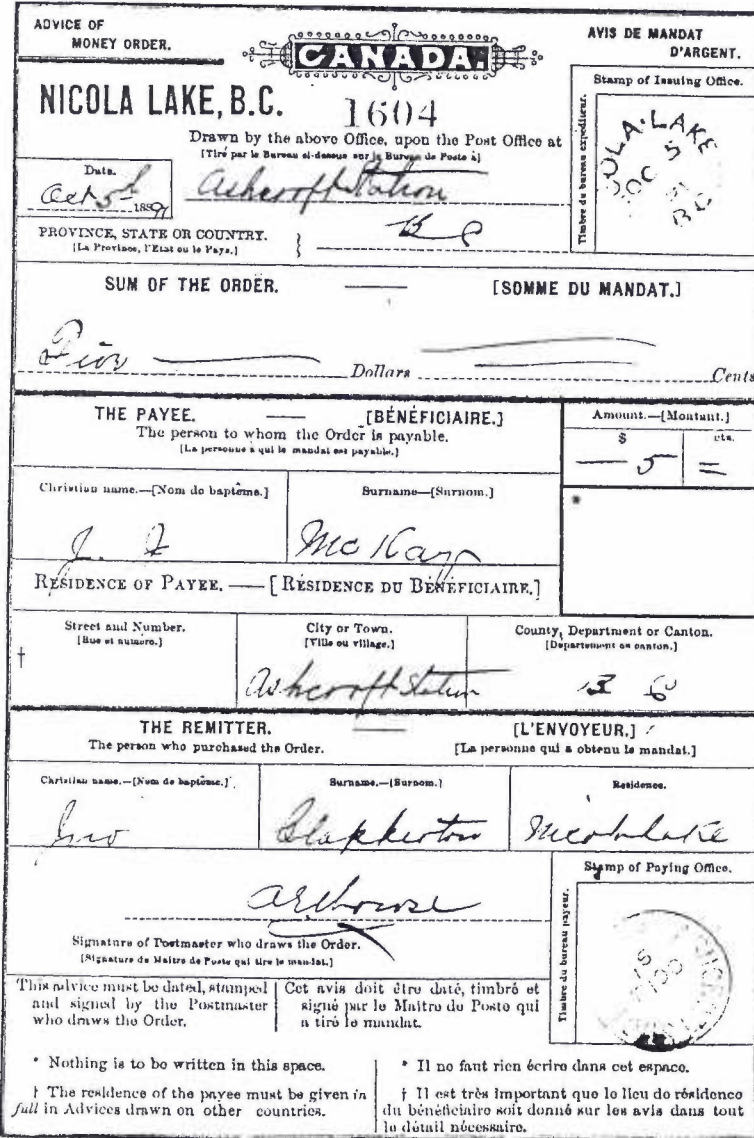 ADVICE OF
MONEY ORDER.
CANADA.
AVIS DE MANDAT
D'ARGENT.
NICOLA LAKE, B.C.
1604
Drawn by the above Office, upon the Post Office at
[Tiré par le Bureau ci-dessus sur le Bureau de Poste à]
Date.
Oct 5th 1891
Ashcroft Station
PROVINCE, STATE OR COUNTRY.
[La Province, l'Etat ou le Pays.]
B C
Stamp of Issuing Office.
Timbre du bureau expéditeur.
OLA LAKE
OC 5
91
B.C
SUM OF THE ORDER. — [SOMME DU MANDAT.]
Five Dollars Cents
THE PAYEE. — [BÉNÉFICIAIRE.]
The person to whom the Order is payable.
[La personne à qui le mandat est payable.]
Amount.—[Montant.]
$ cts.
— 5 =
Christian name.—[Nom de baptême.] Surname—[Surnom.]
*
J. F McKay
RESIDENCE OF PAYEE. — [RÉSIDENCE DU BÉNÉFICIAIRE.]
Street and Number.
[Rue et numéro.]
City or Town.
[Ville ou village.]
County, Department or Canton.
[Département ou canton.]
†
Ashcroft Station B C
THE REMITTER. — [L'ENVOYEUR.]
The person who purchased the Order. [La personne qui a obtenu le mandat.]
Christian name.—[Nom de baptême.] Surname.—[Surnom.] Residence.
Jno Clapperton Nicola Lake
Signature of Postmaster who draws the Order.
[Signature du Maître de Poste qui tire le mandat.]
Stamp of Paying Office.
Timbre du bureau payeur.
This advice must be dated, stamped
and signed by the Postmaster
who draws the Order.
Cet avis doit être daté, timbré et
signé par le Maître de Poste qui
a tiré le mandat.
* Nothing is to be written in this space.
† The residence of the payee must be given in
full in Advices drawn on other countries.
* Il ne faut rien écrire dans cet espace.
† Il est très important que le lieu de résidence
du bénéficiaire soit donné sur les avis dans tout
le détail nécessaire.